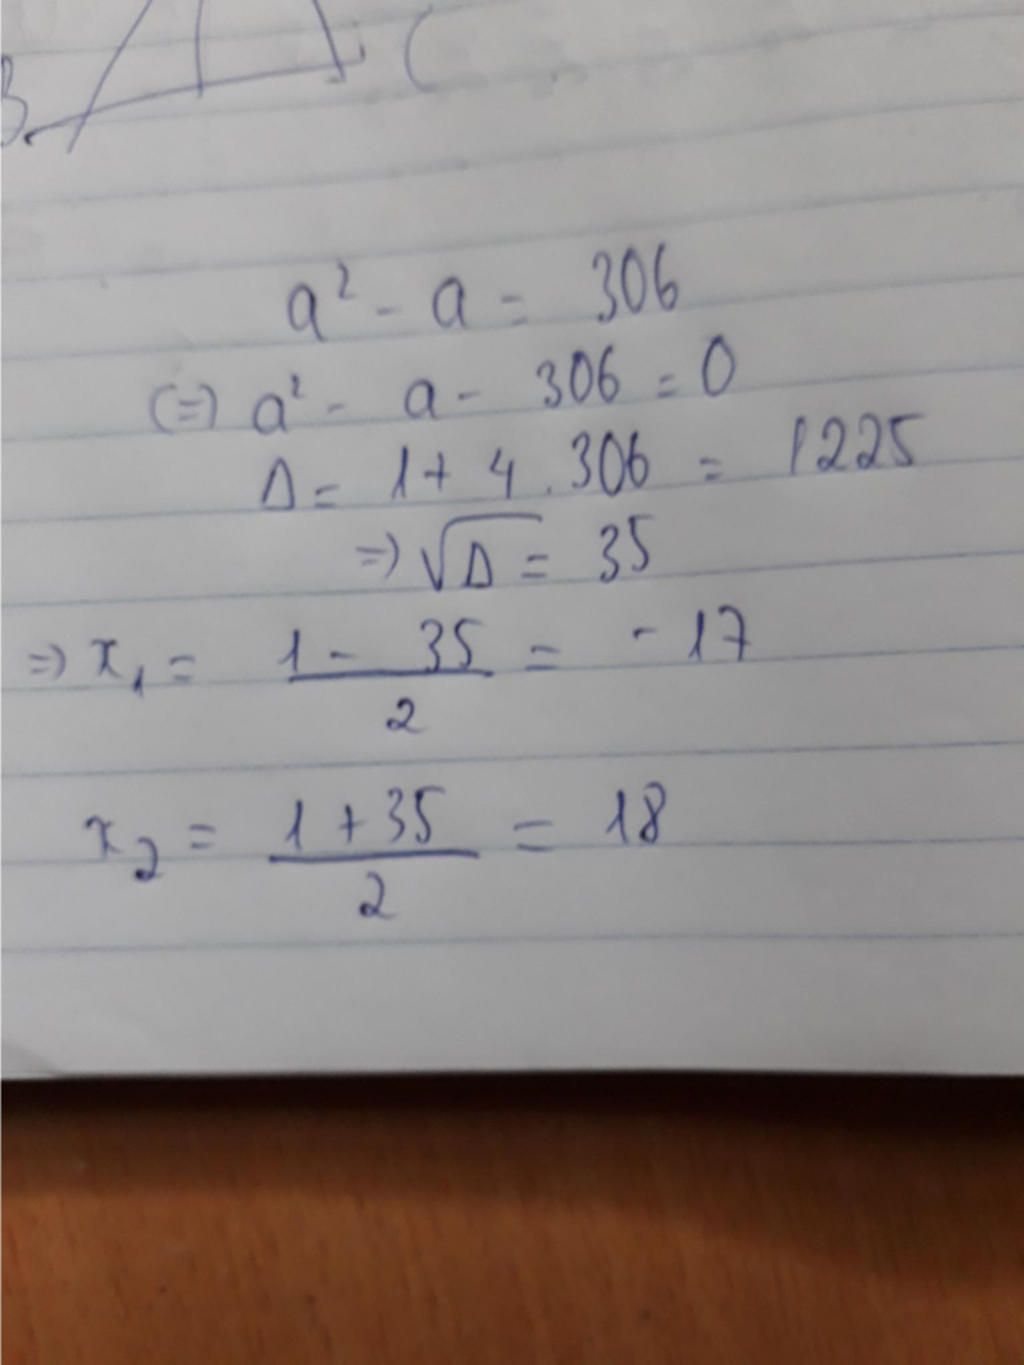 B C
a² - a = 306
(=) a² - a - 306 = 0
Δ = 1 + 4 . 306 = 1225
=) √Δ = 35
=) x₁ = \frac{1 - 35}{2} = - 17
x₂ = \frac{1 + 35}{2} = 18